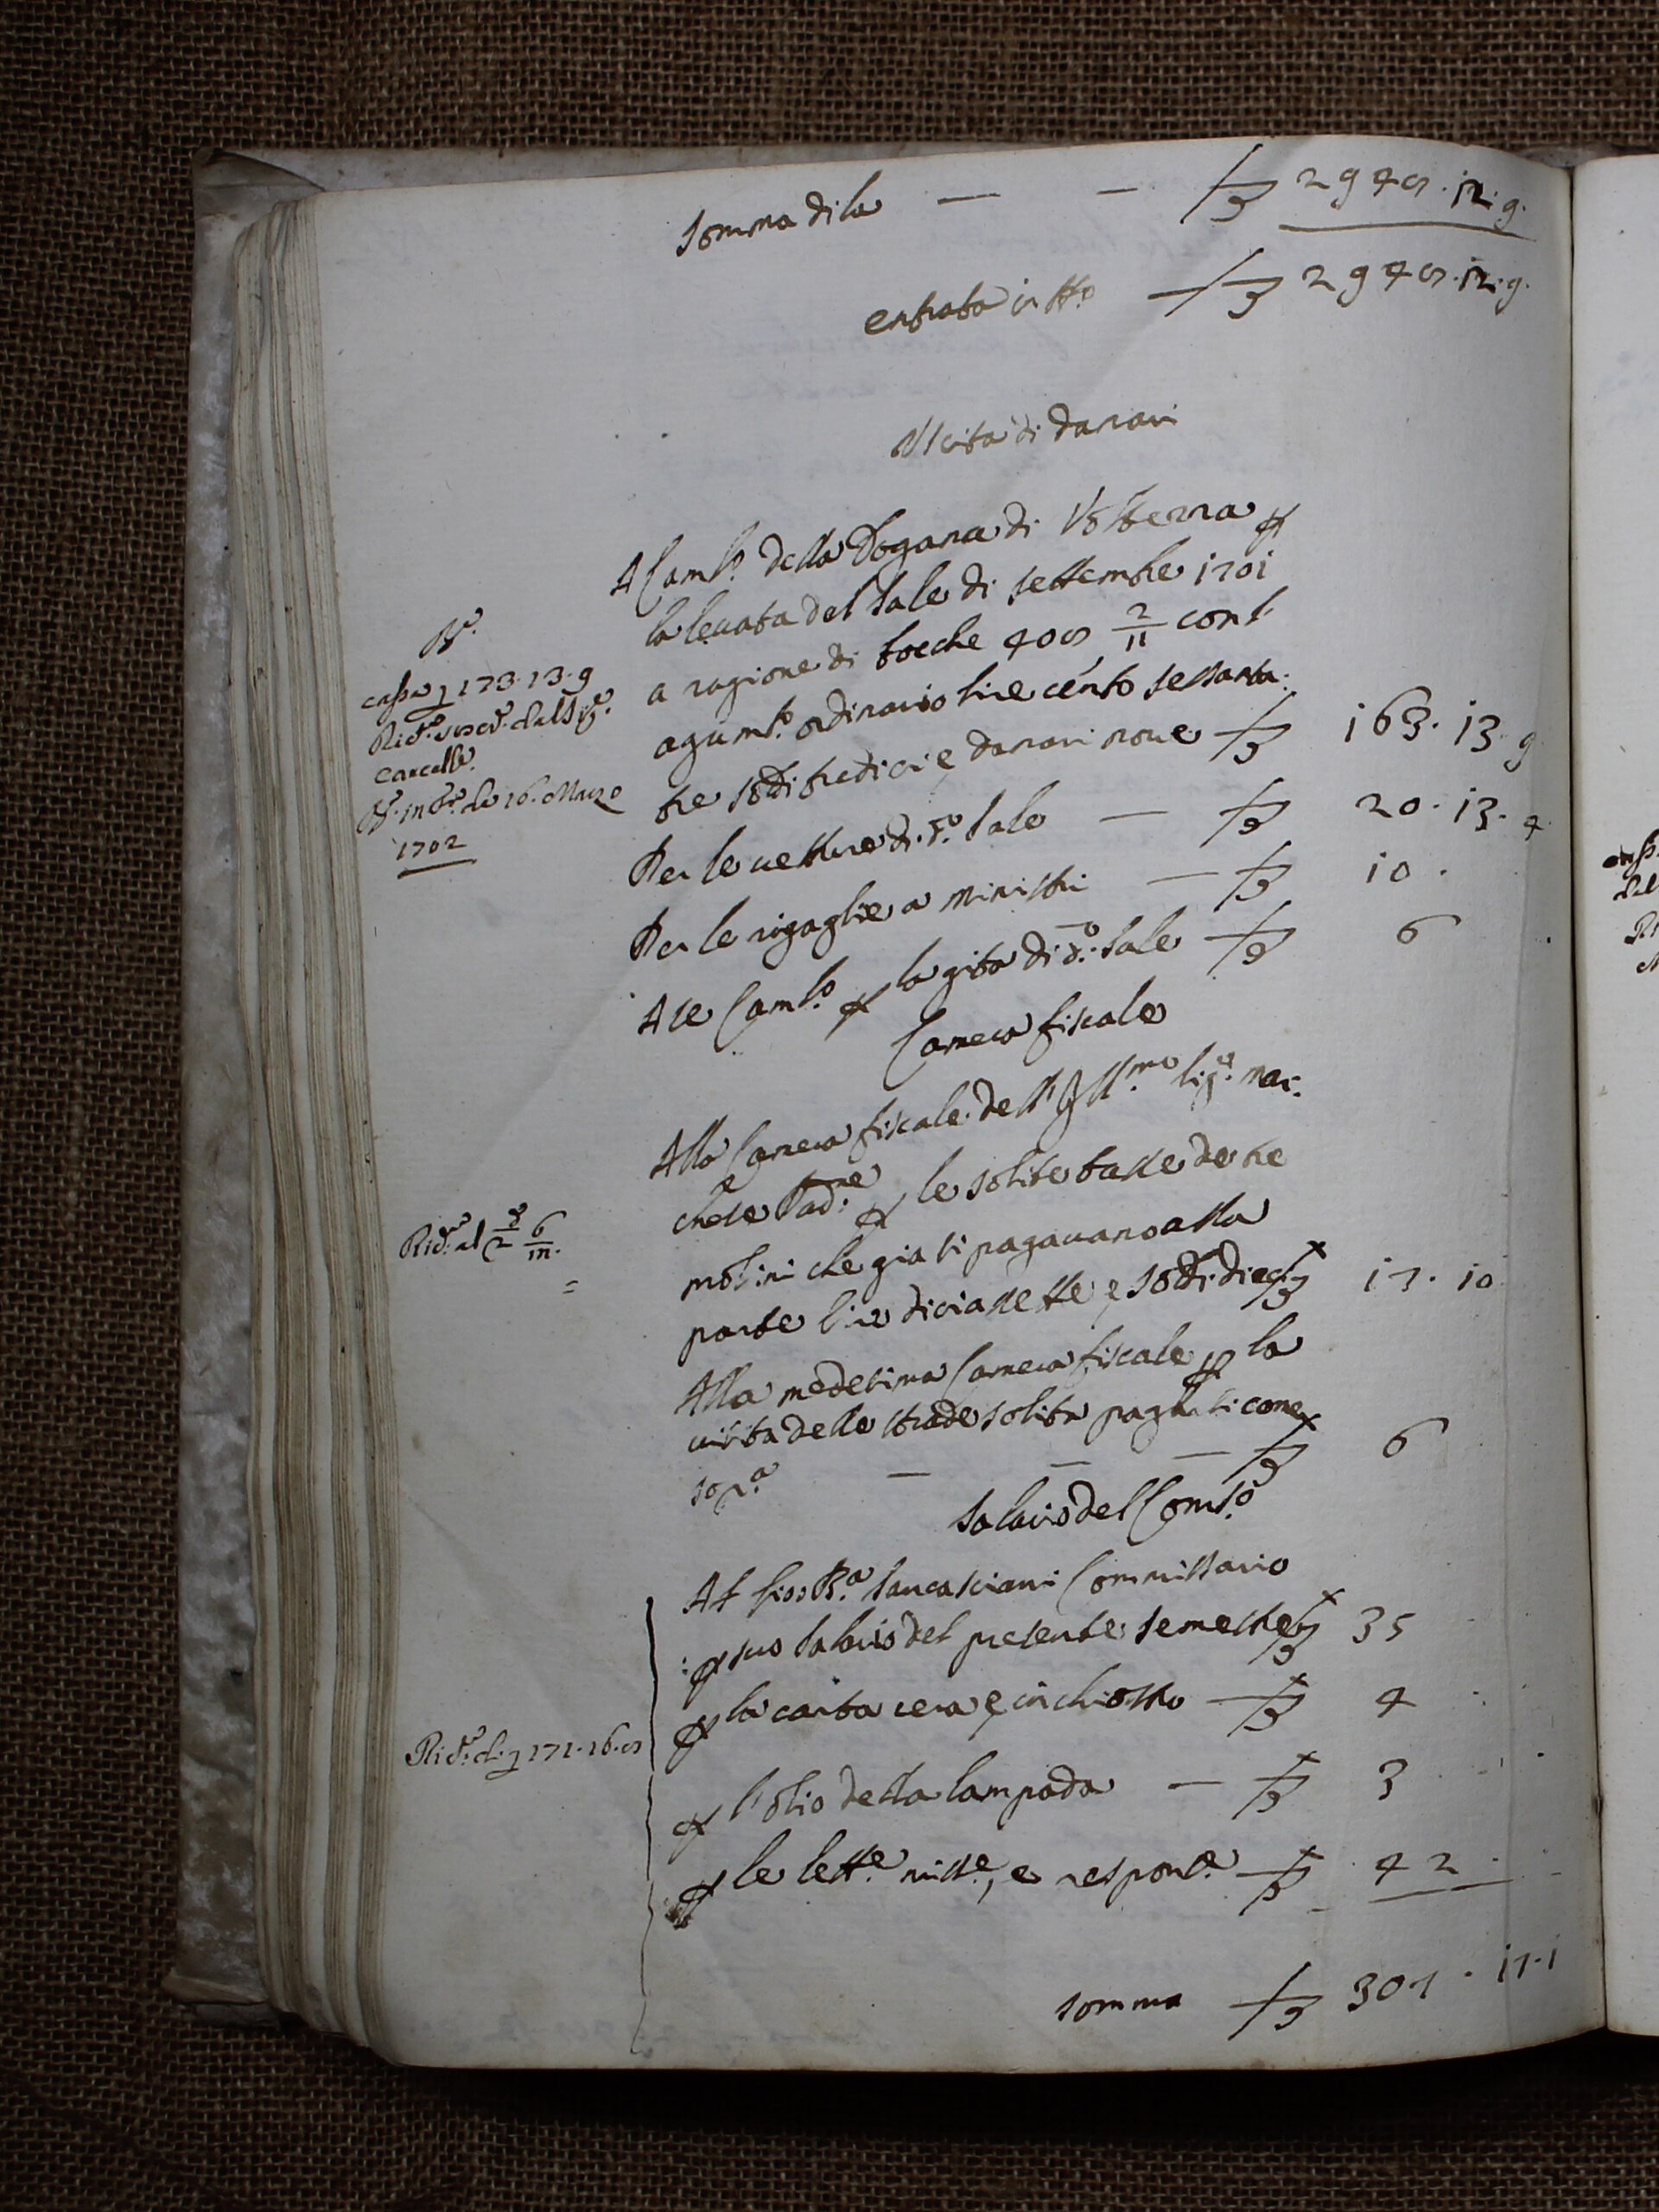 Somma di la — — £ 2948. 12. 9.
entrata in tt.o — £ 2948. 12. 9.
Uscita di danari
A Caml.o della Dogana di Volterra p
la levata del sale di settembre 1701
a ragione di bocche 408 2/11 con l'
agum.to ordinario lire cento sessanta:
tre soldi tredici e danari nove £ 163. 13. 9
Per le vetture di d.o sale — £ 20. 13. 4
Per le rigaglie a ministri — £ 10.
A se Caml.o p la gita di d.o sale £ 6
Camera fiscale
Alla Camera fiscale dell' Ill.mo Sig.e Mar:
chese Pad.ne p le solite tasse de tre
molini che gia si pagavano alla
parte lire diciassette e soldi dieci £ 17. 10
Alla medesima Camera fiscale p la
visita delle strade solita pagarsi come
sop.a — — — £ 6
Salario del Comis.o
Al Sig.
Commissario
p suo salario del presente semestre £ 35
p la carta cera e inchiostro — £ 4
p l'olio della lampada — £ 3
p le lett.e miss.e, e respons.e — £ 42.
somma £ 307. 17. 1
173. 13. 9
Cancell.
16. Marzo
1702
Rid.
Rid. 171. 16. 8